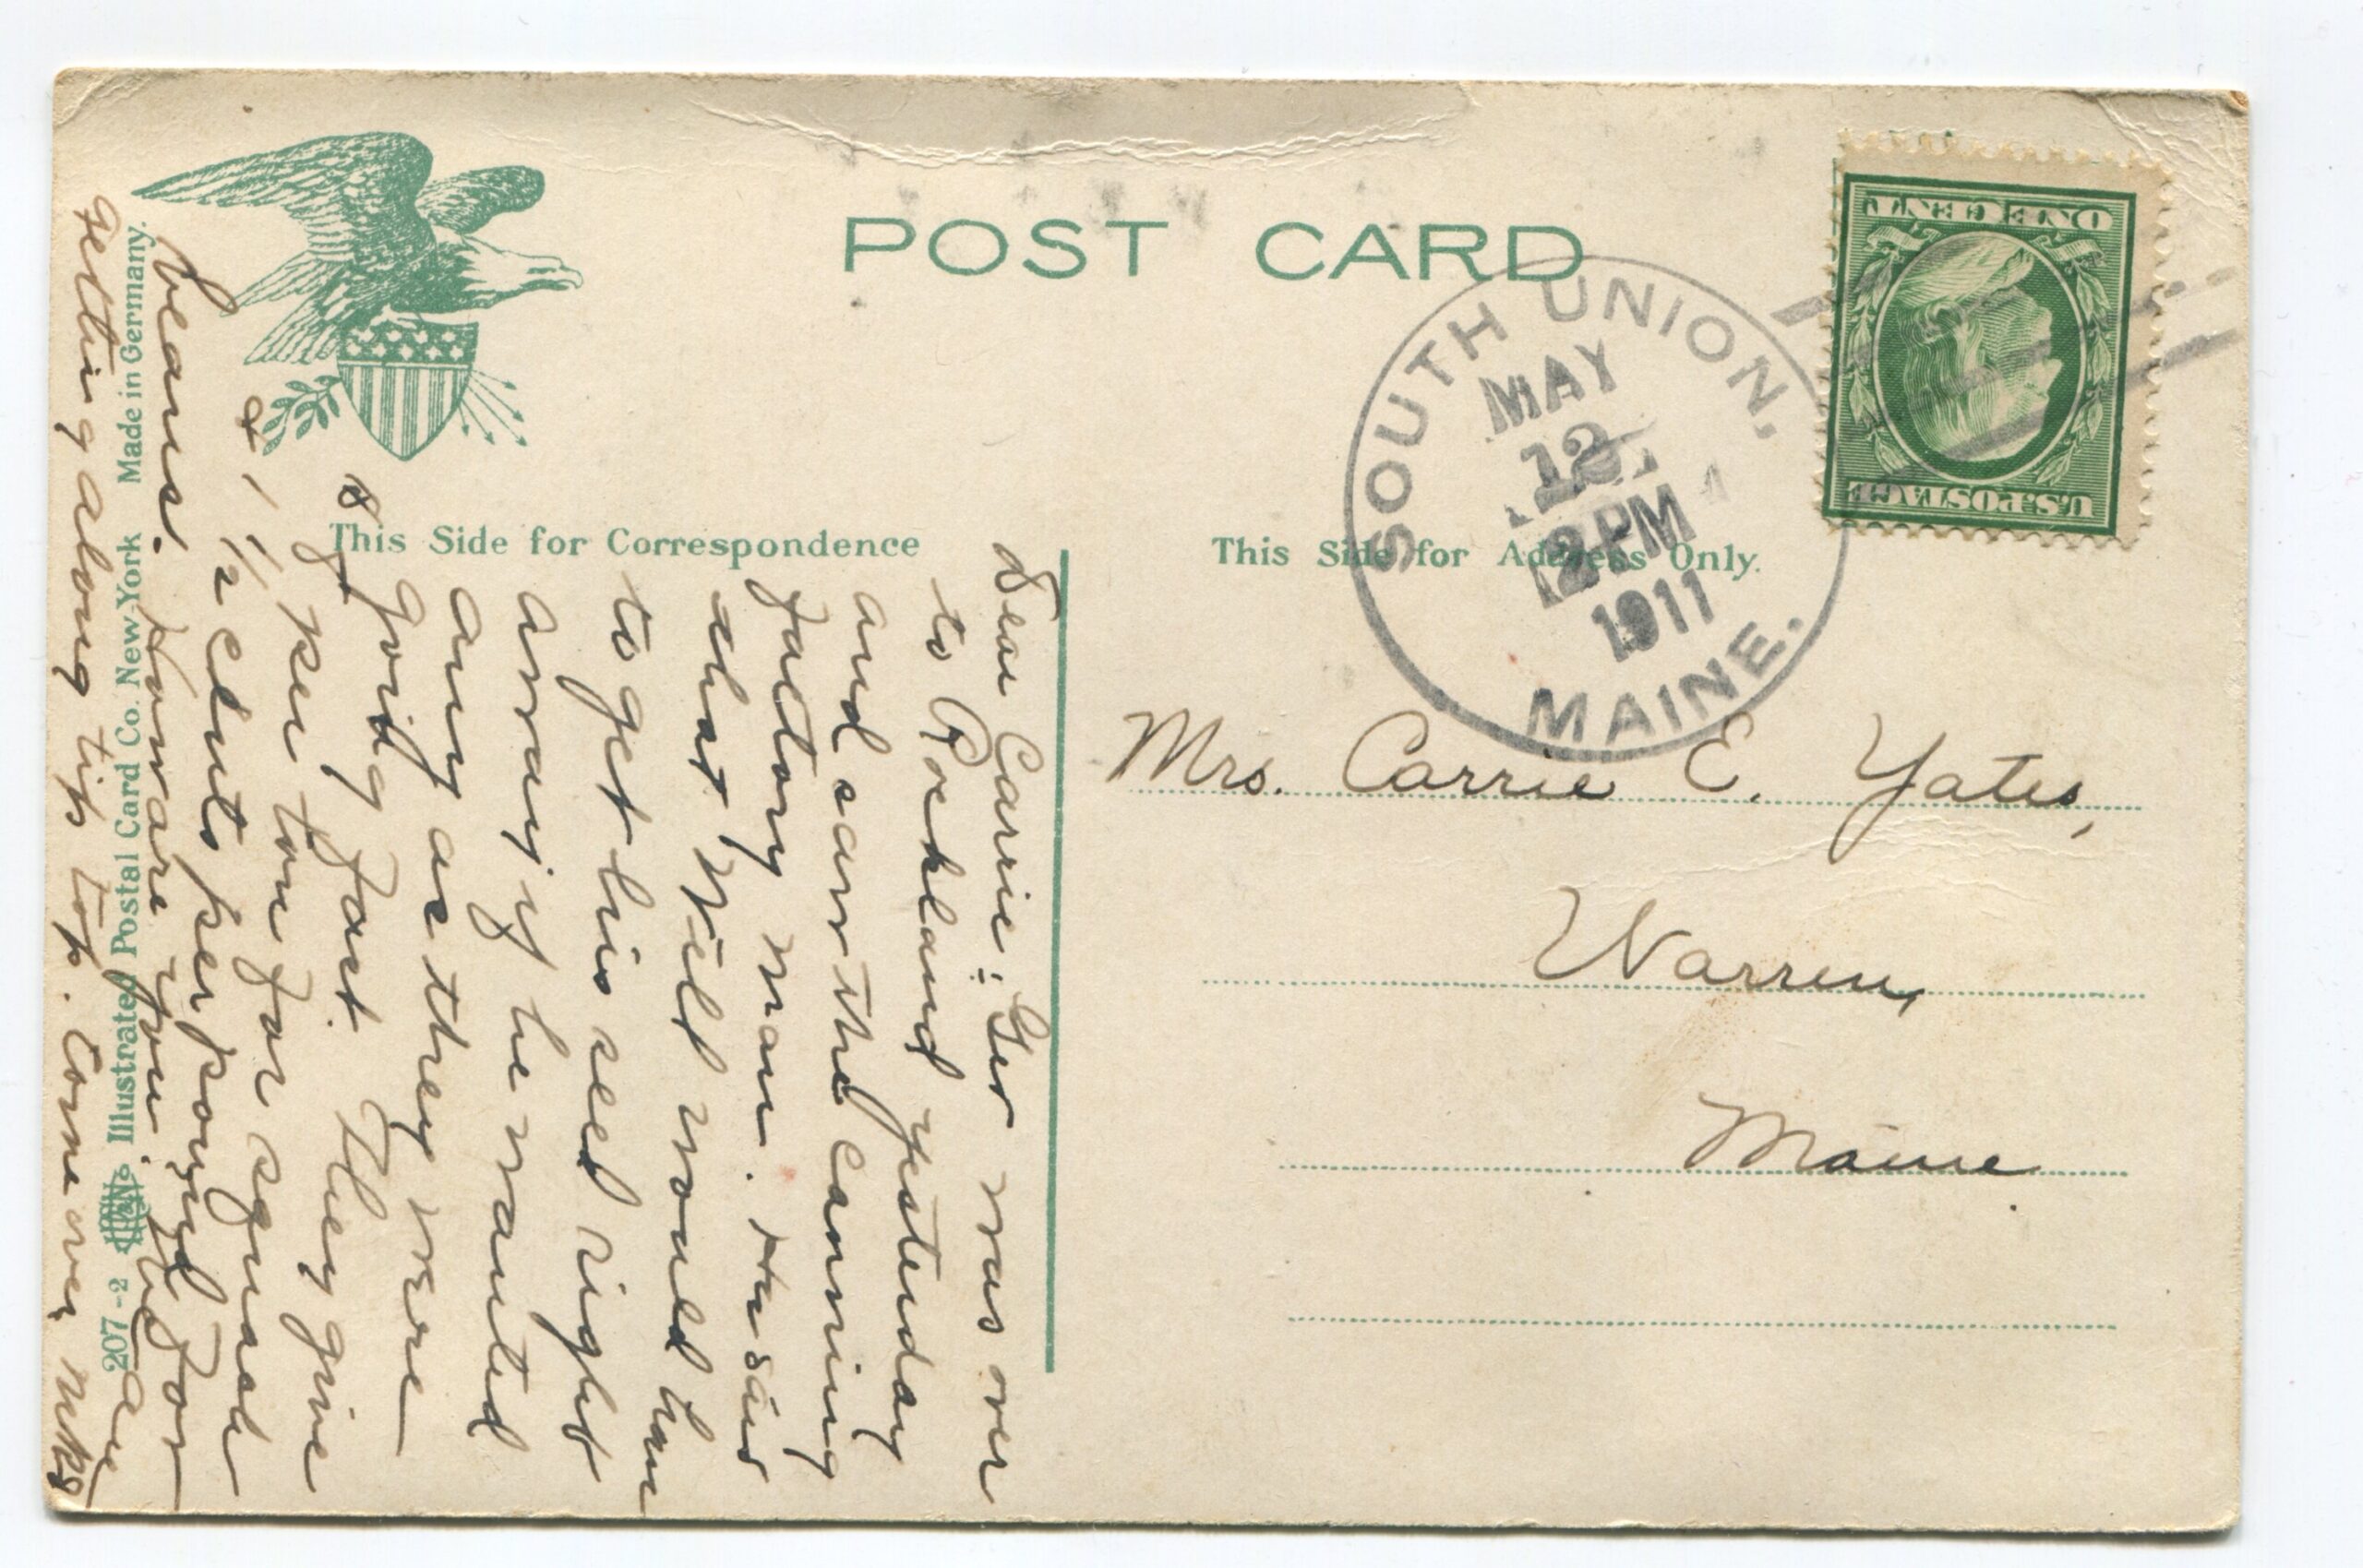 POST CARD
U.S. POSTAGE
ONE CENT
SOUTH UNION,
MAY
12
2 PM
1911
MAINE.
This Side for Correspondence
This Side for Address Only.
Dear Carrie: Geo was over
to Rockland yesterday
and saw the canning
factory man. He said
that Will would have
to get his seed right
away if he wanted
any as they were
going fast. They give
$8 per ton for squash
& 1 1/2 cents per pound for
beans. How are you. We are
getting along tip top. Come over
Mrs. Carrie E. Yates,
Warren,
Maine.
207-2 Illustrated Postal Card Co. New York Made in Germany.